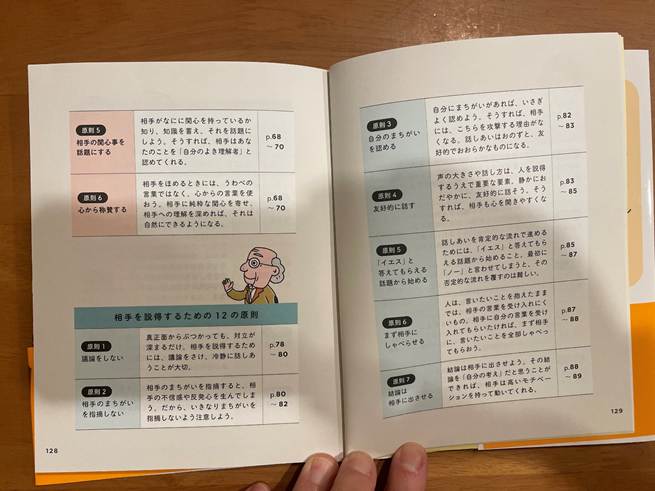 原則 5
相手の関心事を
話題にする
相手がなにに関心を持っているか
知り、知識を蓄え、それを話題に
しよう。そうすれば、相手はあな
たのことを「自分のよき理解者」と
認めてくれる。
p.68
〜 70
原則 6
心から称賛する
相手をほめるときには、うわべの
言葉ではなく、心からの言葉を使
おう。相手に純粋な関心を寄せ、
相手への理解を深めれば、それは
自然にできるようになる。
p.68
〜 70
相手を説得するための 12 の原則
原則 1
議論をしない
真正面からぶつかっても、対立が
深まるだけ。相手を説得するため
には、議論をさけ、冷静に話しあ
うことが大切。
p.78
〜 80
原則 2
相手のまちがい
を指摘しない
相手のまちがいを指摘すると、相
手の不信感や反発心を生んでしま
う。だから、いきなりまちがいを
指摘しないよう注意しよう。
p.80
〜 82
128
原則 3
自分のまちがい
を認める
自分にまちがいがあれば、いさぎ
よく認めよう。そうすれば、相手
には、こちらを攻撃する理由がな
くなる。話しあいはおのずと、友
好的でおおらかなものになる。
p.82
〜 83
原則 4
友好的に話す
声の大きさや話し方は、人を説得
するうえで重要な要素。静かにお
だやかに、友好的に話そう。そう
すれば、相手も心を開きやすくな
る。
p.83
〜 85
原則 5
「イエス」と
答えてもらえる
話題から始める
話しあいを肯定的な流れで進める
ためには、「イエス」と答えてもら
える話題から始めること。最初に
「ノー」と言わせてしまうと、その
否定的な流れを覆すのは難しい。
p.85
〜 87
原則 6
まず相手に
しゃべらせる
人は、言いたいことを抱えたまま
では、相手の言葉を受け入れにく
いもの。相手に自分の言葉を受け
入れてもらいたければ、まず相手
に、言いたいことを全部しゃべっ
てもらおう。
p.87
〜 88
原則 7
結論は
相手に出させる
結論は相手に出させよう。その結
論を「自分の考え」だと思うことが
できれば、相手は高いモチベー
ションを持って動いてくれる。
p.88
〜 89
129